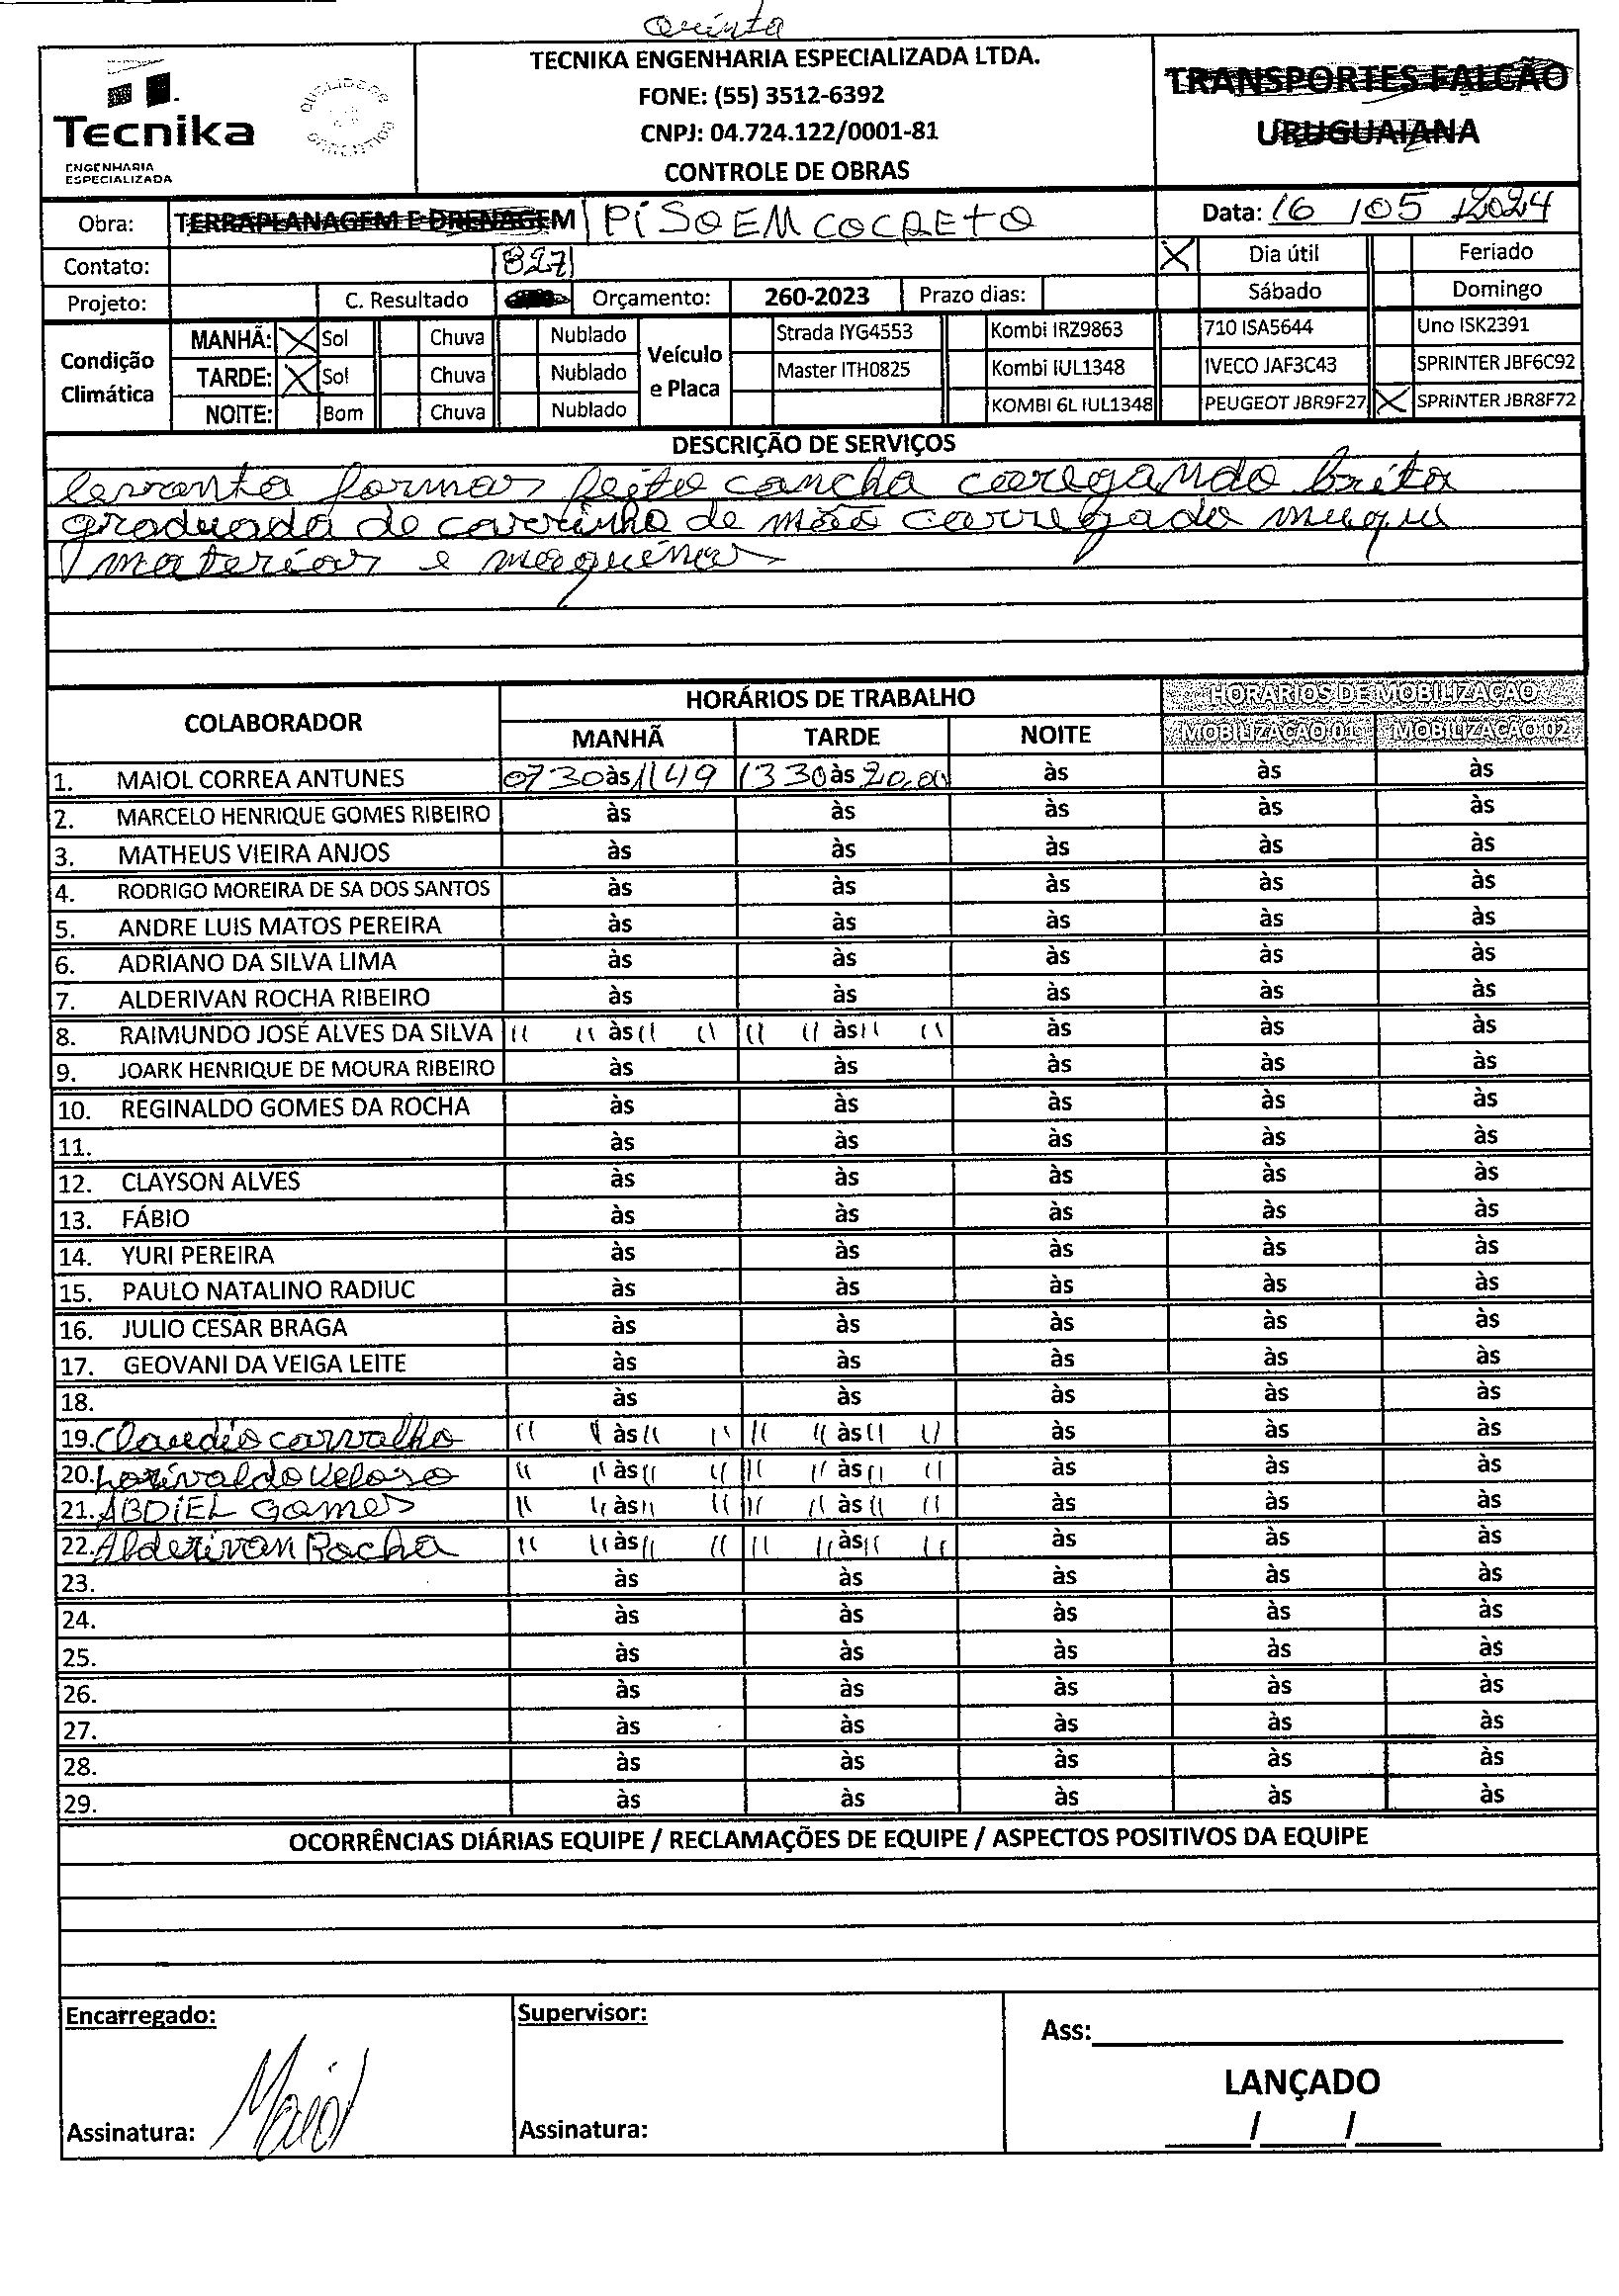 Quinta
Tecnika
ENGENHARIA
ESPECIALIZADA
QUALIDADE
GARANTIDA
TECNIKA ENGENHARIA ESPECIALIZADA LTDA.
FONE: (55) 3512-6392
CNPJ: 04.724.122/0001-81
CONTROLE DE OBRAS
TRANSPORTES FALCÃO
URUGUAIANA
Obra: TERRAPLANAGEM E DRENAGEM PISO EM COCRETO Data: 16 / 05 / 2024
Contato: 827 X Dia útil Feriado
Projeto: C. Resultado Orçamento: 260-2023 Prazo dias: Sábado Domingo
Condição Climática
MANHÃ: X Sol Chuva Nublado
TARDE: X Sol Chuva Nublado
NOITE: Bom Chuva Nublado
Veículo e Placa
Strada IYG4553 Kombi IRZ9863 710 ISA5644 Uno ISK2391
Master ITH0825 Kombi IUL1348 IVECO JAF3C43 SPRINTER JBF6C92
KOMBI 6L IUL1348 PEUGEOT JBR9F27 X SPRINTER JBR8F72
DESCRIÇÃO DE SERVIÇOS
levanta formas feito cancha caregando brita
graduada de carrinho de mão carregado muque
materias e maquinas
COLABORADOR HORÁRIOS DE TRABALHO HORÁRIOS DE MOBILIZAÇÃO
MANHÃ TARDE NOITE MOBILIZAÇÃO 01 MOBILIZAÇÃO 02
1. MAIOL CORREA ANTUNES 0730 às 1149 1330 às 20,00 às às às
2. MARCELO HENRIQUE GOMES RIBEIRO às às às às às
3. MATHEUS VIEIRA ANJOS às às às às às
4. RODRIGO MOREIRA DE SA DOS SANTOS às às às às às
5. ANDRE LUIS MATOS PEREIRA às às às às às
6. ADRIANO DA SILVA LIMA às às às às às
7. ALDERIVAN ROCHA RIBEIRO às às às às às
8. RAIMUNDO JOSÉ ALVES DA SILVA " " às " " " " às " " às às às
9. JOARK HENRIQUE DE MOURA RIBEIRO às às às às às
10. REGINALDO GOMES DA ROCHA às às às às às
11. às às às às às
12. CLAYSON ALVES às às às às às
13. FÁBIO às às às às às
14. YURI PEREIRA às às às às às
15. PAULO NATALINO RADIUC às às às às às
16. JULIO CESAR BRAGA às às às às às
17. GEOVANI DA VEIGA LEITE às às às às às
18. às às às às às
19. Claudio carvalho " " às " " " " às " " às às às
20. Lorivaldo Veloso " " às " " " " às " " às às às
21. ABDIEL Gomes " " às " " " " às " " às às às
22. Alderivan Rocha " " às " " " " às " " às às às
23. às às às às às
24. às às às às às
25. às às às às às
26. às às às às às
27. às às às às às
28. às às às às às
29. às às às às às
OCORRÊNCIAS DIÁRIAS EQUIPE / RECLAMAÇÕES DE EQUIPE / ASPECTOS POSITIVOS DA EQUIPE
Encarregado: Supervisor: Ass:
LANÇADO
Assinatura: Maiol Assinatura: / /